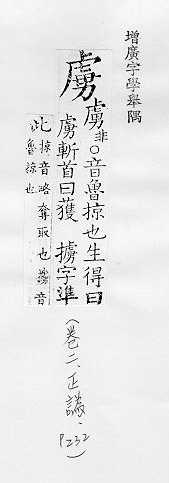 增廣字學舉隅
虜 虜非○音魯掠也生得曰
虜斬首曰獲 擄字準
此 掠音略奪取也 音
魯掠也
(卷二、正譌、P232)